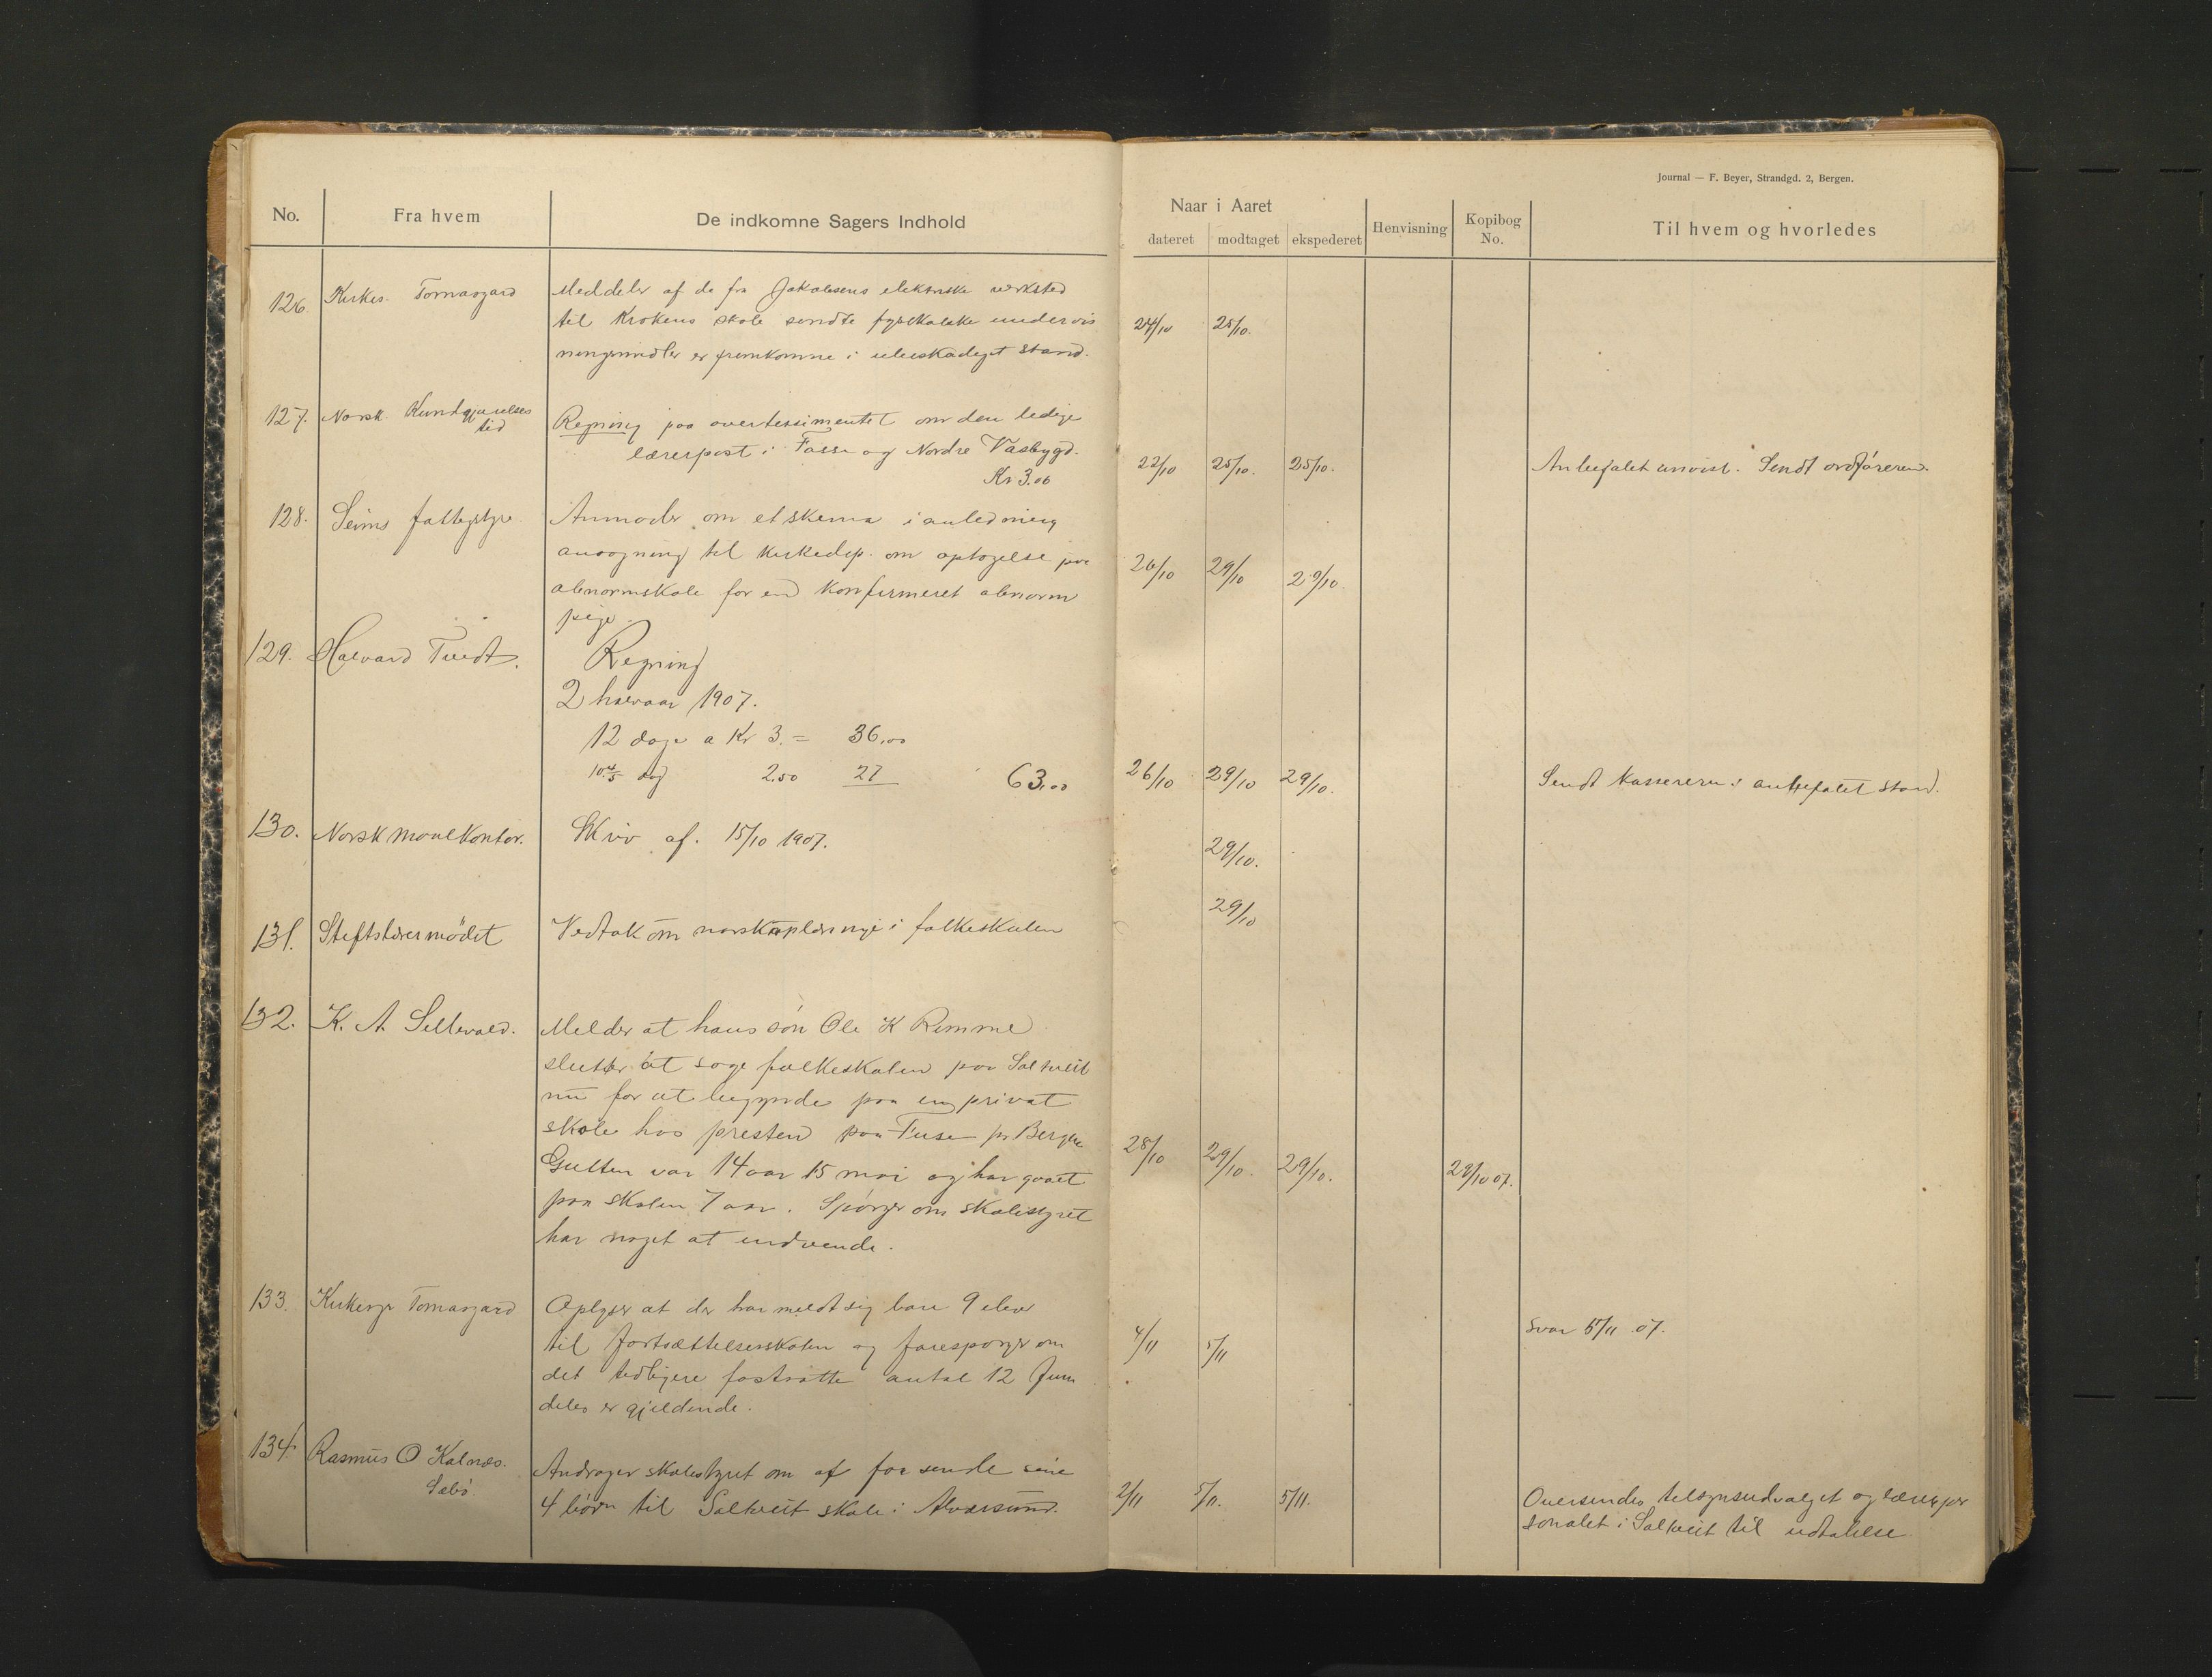 Journal — F. Beyer, Strandgd. 2, Bergen.
No. Fra hvem De indkomne Sagers Indhold Naar i Aaret dateret modtaget ekspederet Henvisning Kopibog No. Til hvem og hvorledes
126 Kirkes. Tomasgard Meddeler af de fra Jakobsens elektriske verksted
til Krokens skole sendte fysikalske undervis 24/10 25/10.
ningsmidler er fremkomne i ubeskadiget stand.
127. Norsk Kundgjørelses
tid
Regning paa avertissimentet om den ledige
lærerpost i Fosse og Nordre Vasbygd. 22/10 25/10. 25/10. Anbefalet anvist. Sendt ordføreren.
Kr 3.06
128. Seims fattigstyre. Anmoder om et skema i anledning
ansøgning til Kirkedep. om optagelse paa 26/10 29/10 29/10.
abnormskole for en konfirmeret abnorm
pige.
129. Halvard Tvedt. Regning
2 halvaar 1907.
12 dage a Kr 3. = 36,00
10 4/5 dag 2.50 27 63,00 26/10 29/10 29/10. Sendt kassereren i anbefalet stand.
130. Norsk Maalkontor. Skriv af. 15/10 1907. 29/10.
131. Stiftslærermødet Vedtak om norskoplæringi i folkeskulen 29/10
132. K. A. Sellevold. Melder at hans søn Ole K Rimme
slutter at søge folkeskolen paa Saltveit
nu for at begynde paa en privat
skole hos presten paa Fuse pr Bergen 28/10 29/10. 29/10. 29/10 07.
Gutten var 14 aar 15 mai og har gaaet
paa skolen 7 aar. Spørger om skolestyret
har noget at indvende.
133. Kirkesgr Tomasgard Oplyser at der har meldt sig bare 9 elever
til fortsættelsesskolen og forespørger om 4/11 5/11 Svar 5/11 07.
det tidligere fastsatte antal 12 frem
deles er gjeldende.
134. Rasmus O Kalnæs.
Sæbø.
Andrager skolestyret om at faa sende sine
4 børn til Saltveit skole i Alversund. 2/11 5/11. 5/11. Oversendes tilsynsudvalget og lærerper
sonalet i Saltveit til udtalelse.